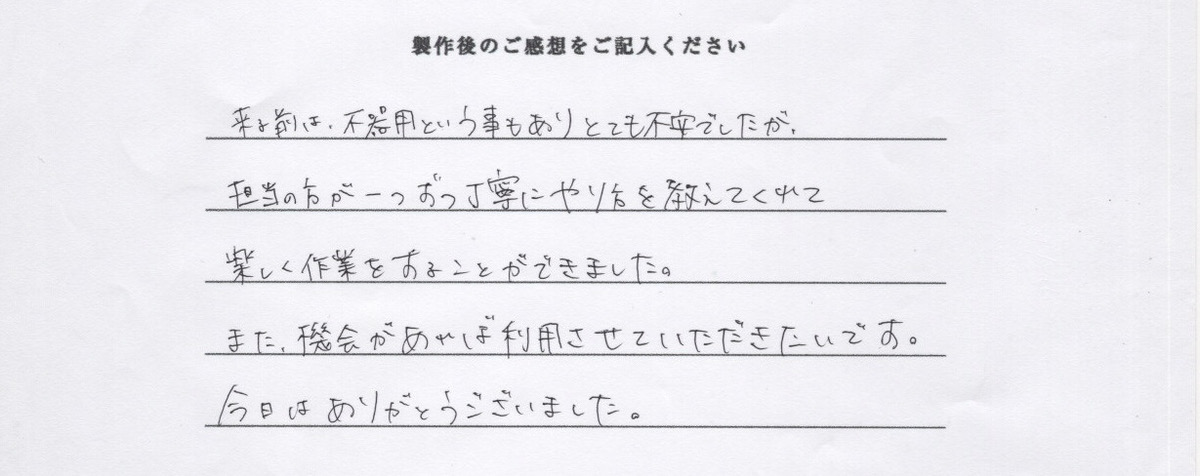 製作後のご感想をご記入ください
来る前は、不器用という事もありとても不安でしたが、
担当の方が一つずつ丁寧にやり方を教えてくれて
楽しく作業をすることができました。
また、機会があれば利用させていただきたいです。
今日はありがとうございました。